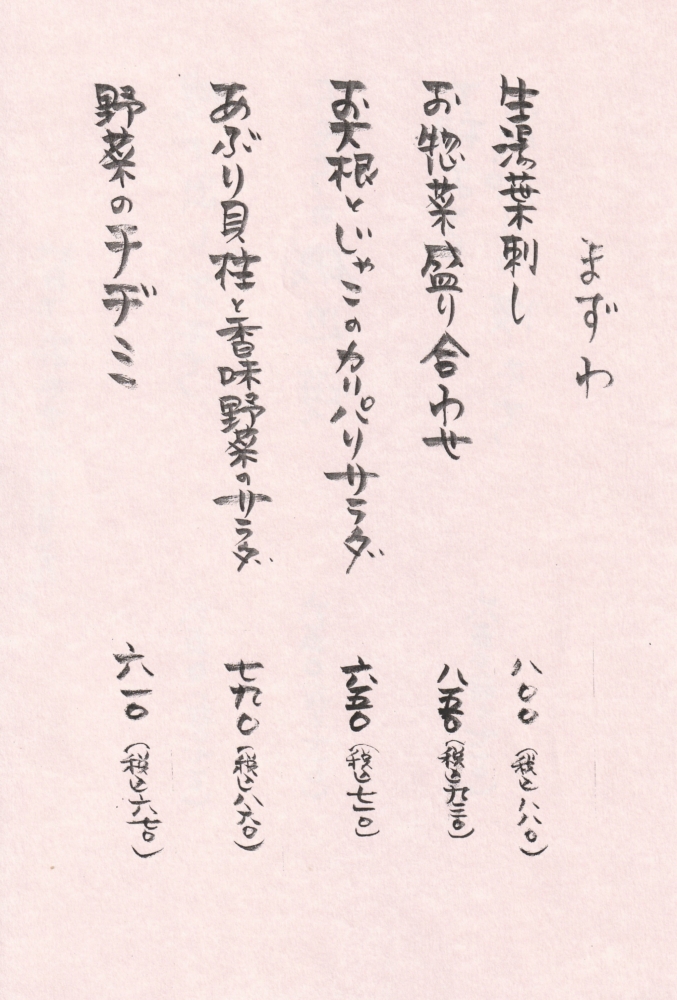 まずわ
生湯葉刺し 八〇〇（税込八八〇）
お惣菜盛り合わせ 八五〇（税込九三〇）
お大根とじゃこのカリパリサラダ 六五〇（税込七一〇）
あぶり貝柱と香味野菜のサラダ 七九〇（税込八六〇）
野菜のチヂミ 六一〇（税込六七〇）